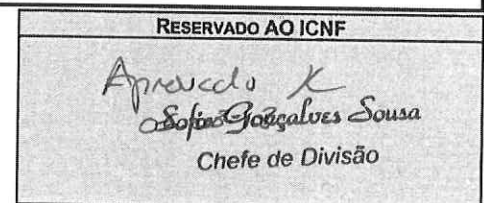 RESERVADO AO ICNF
Aprovado
Sofia Gonçalves Sousa
Chefe de Divisão